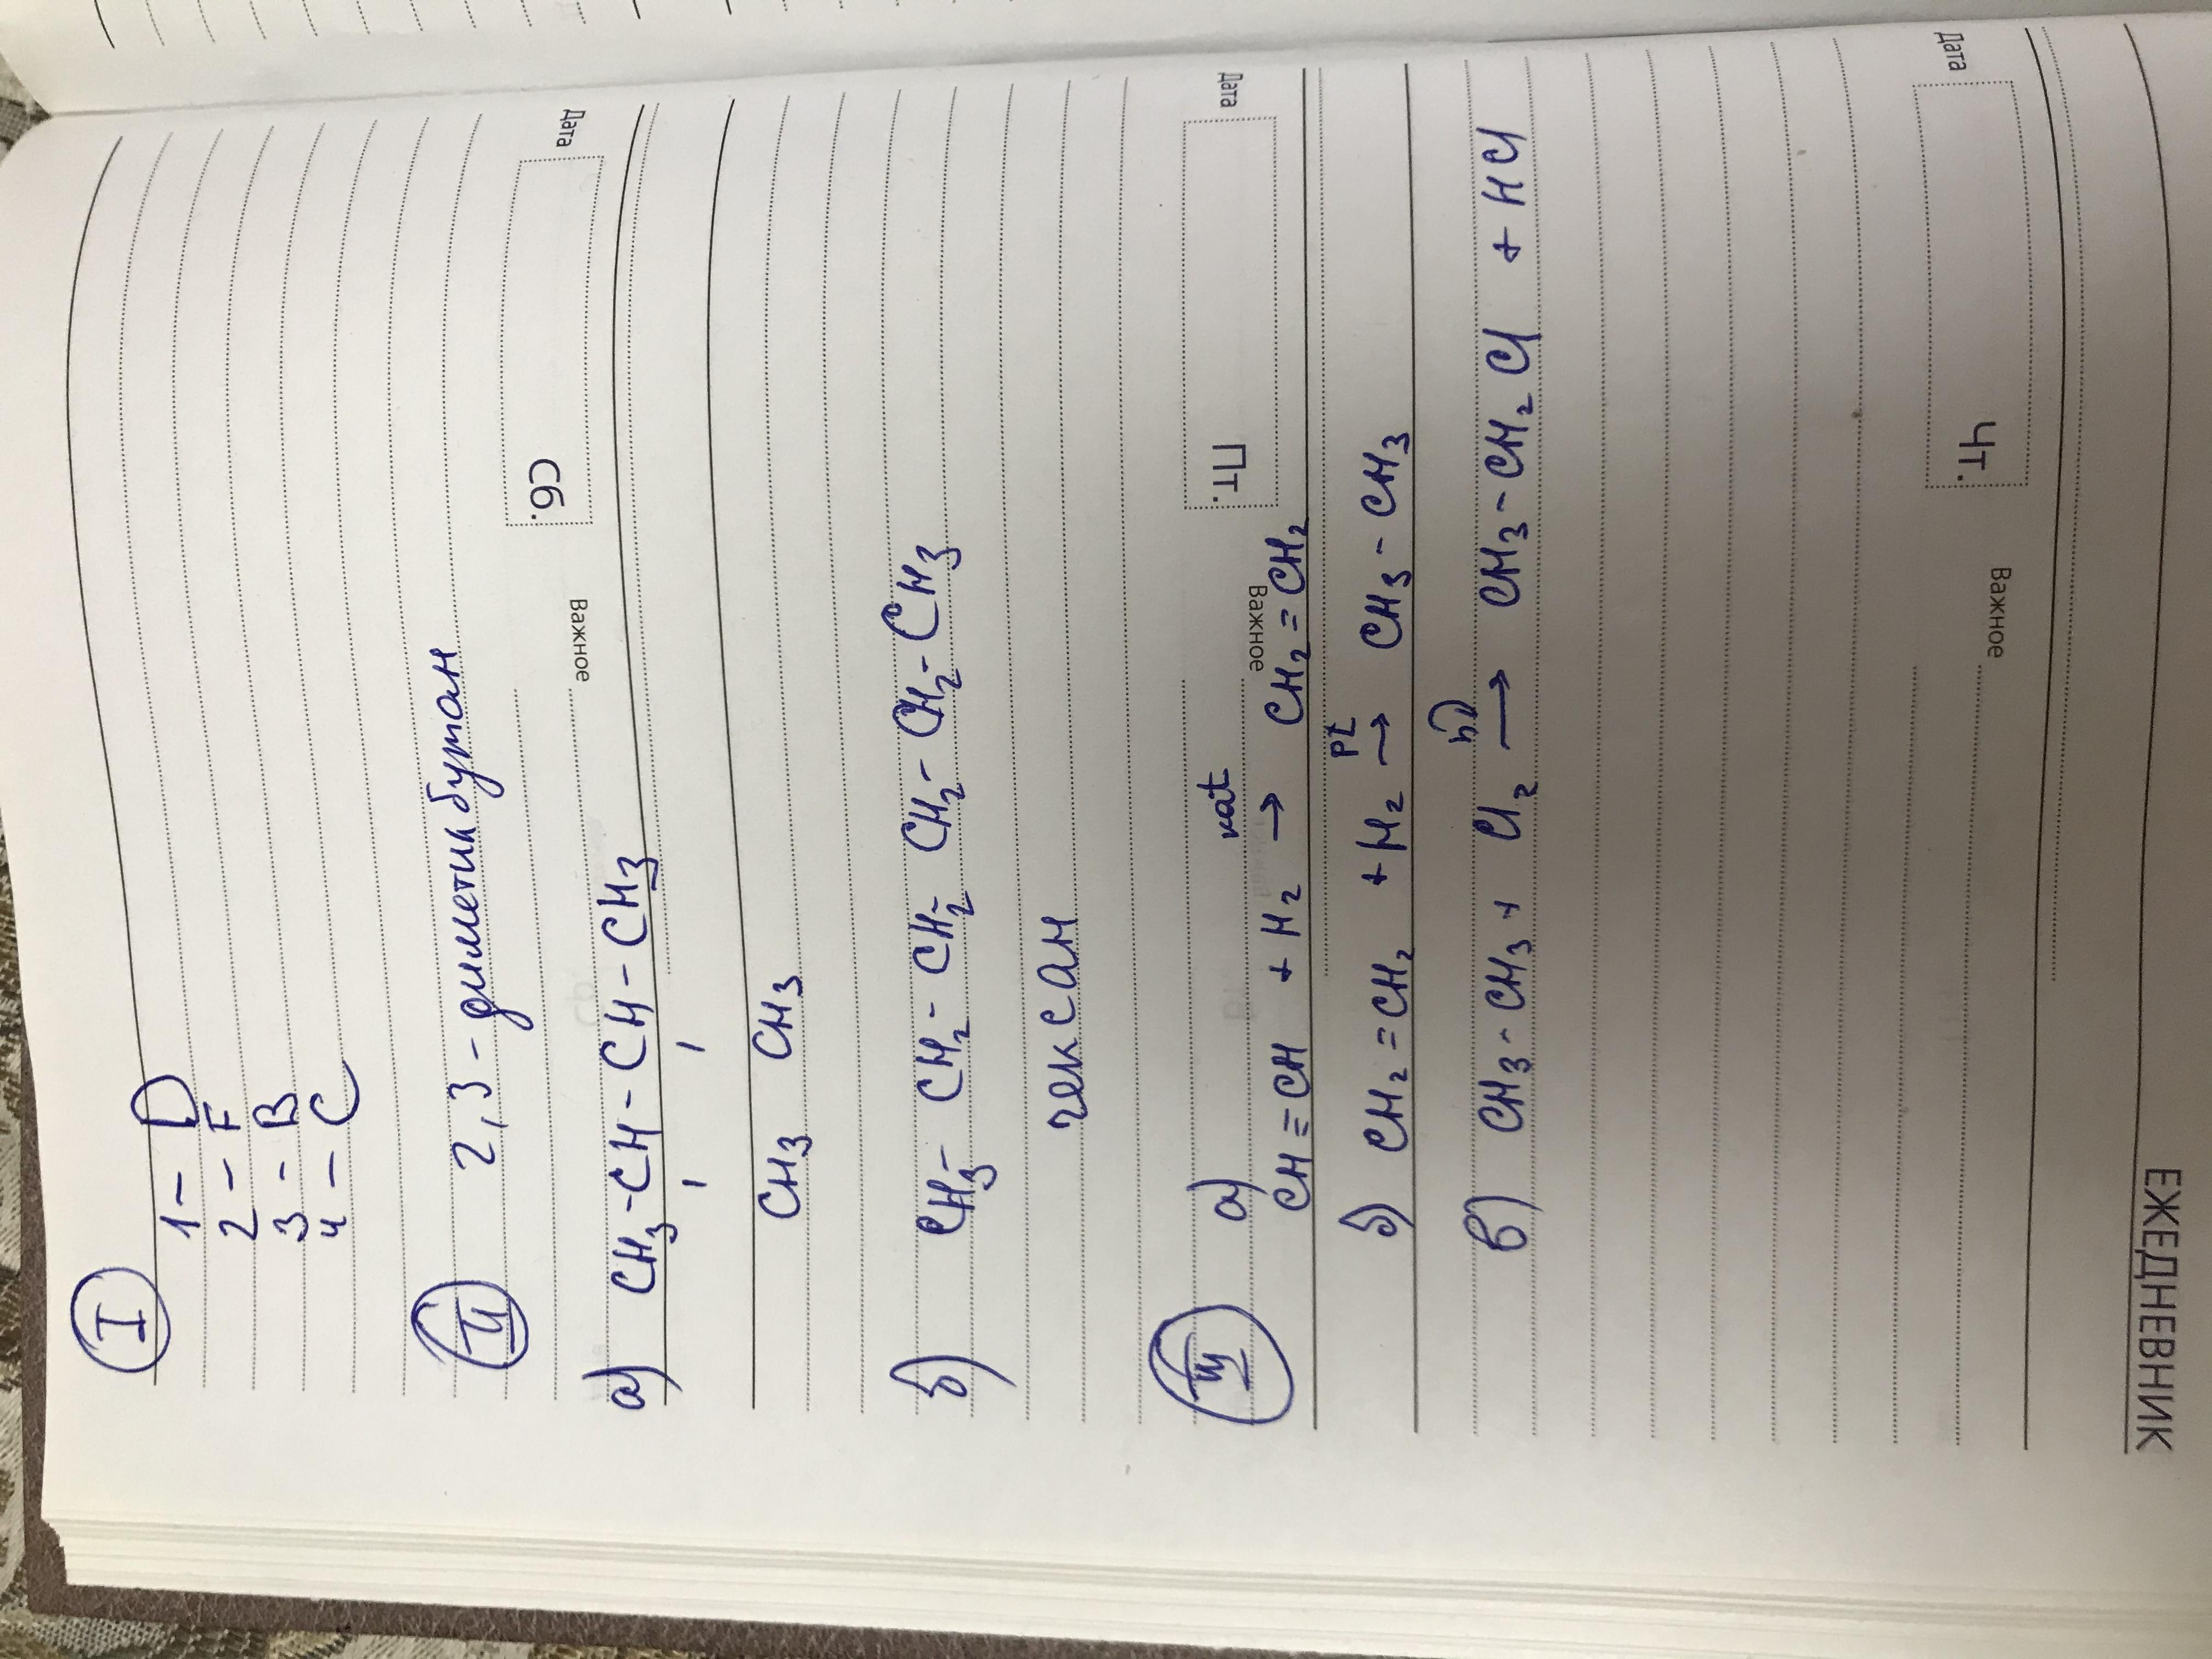 I
1 – D
2 – F
3 – B
4 – C
II 2,3 – диметилбутан
a) CH₃-CH-CH-CH-CH₃
CH₃ CH₃
б) CH₃- CH₂- CH₂- CH₂- CH₂- CH₃
гексан
III a) kat
CH≡CH + H₂ → CH₂=CH₂
Pt
б) CH₂=CH₂ + H₂ → CH₃-CH₃
hν
в) CH₃-CH₃ + Cl₂ → CH₃-CH₂Cl + HCl
Дата
Сб.
Важное
Дата
Пт.
Важное
Дата
Чт.
Важное
ЕЖЕДНЕВНИК